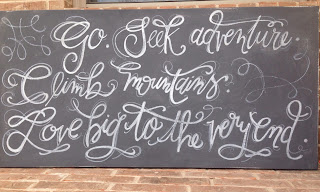 Go. Seek adventure.
Climb mountains.
Love big to the very end.